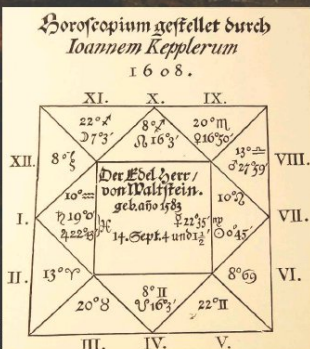 Horoscopium gestellet durch
Ioannem Kepplerum
1608.
XI. X. IX.
22°♐ 8°♐ 20°♏
☽7°3' ☊16°3' ♀16°50'
XII. 8°♑ 13°♎ VIII.
♂27°39'
Der Edel Herr/
von Waltstein.
geb. año 1583
14. Sept. 4 und 1½
10°♒ 10°♌
I. ♄19°0' ☿22°35' VII.
♃22°8' ♓ ♍ ☉0°45'
II. 13°♈ 8°♋ VI.
20°♉ 8°♊ 22°♊
☋16°3'
III. IV. V.